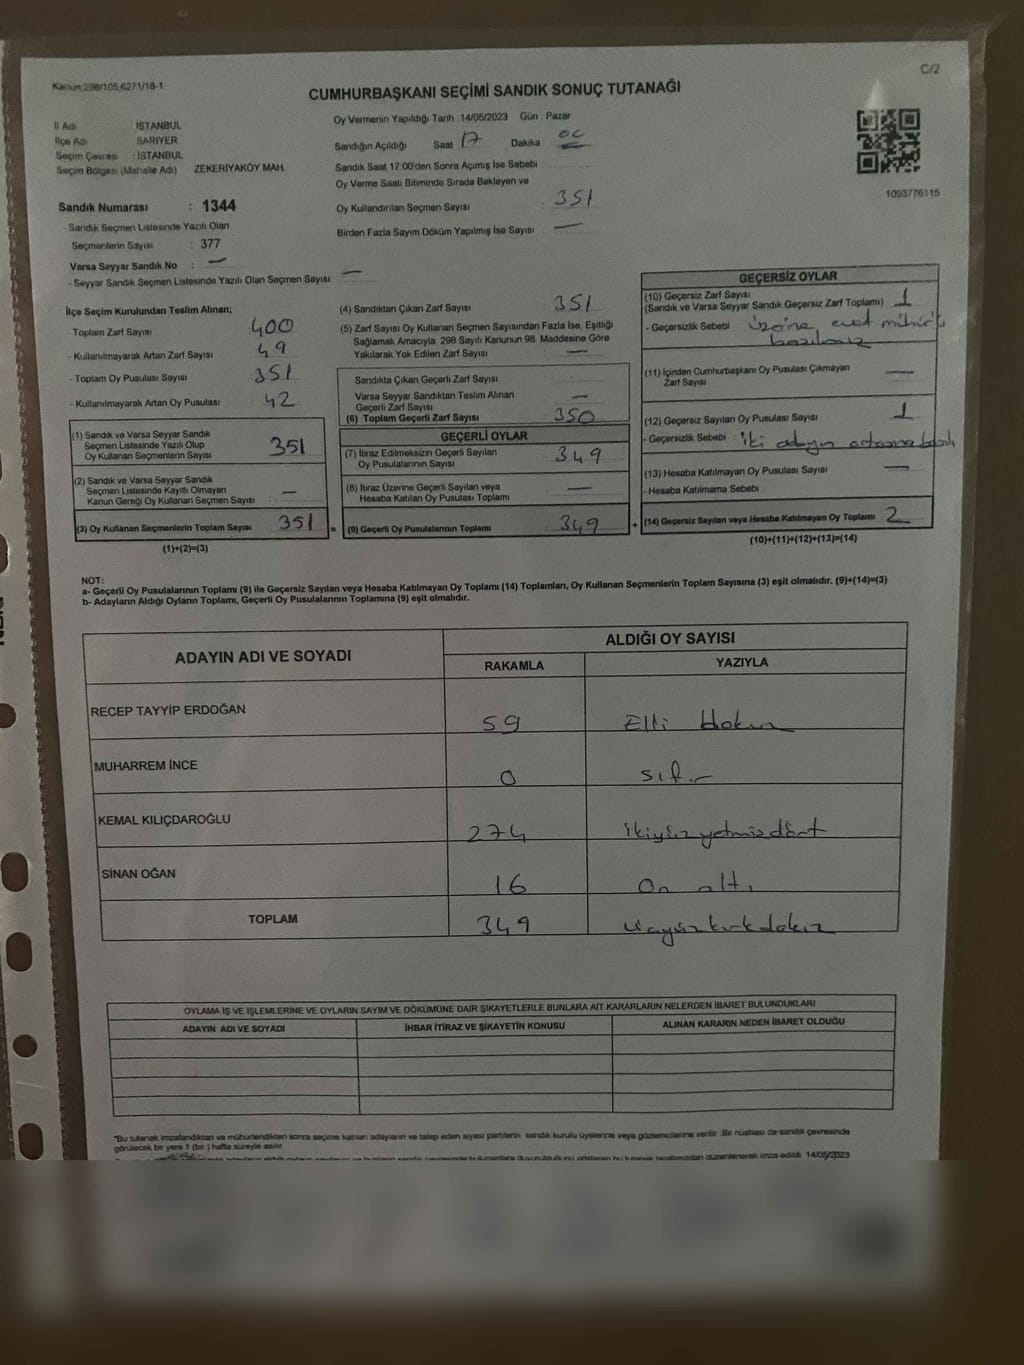 Kanun:298/105,6271/18-1
C/2
CUMHURBAŞKANI SEÇİMİ SANDIK SONUÇ TUTANAĞI
İl Adı : İSTANBUL
İlçe Adı : SARIYER
Seçim Çevresi : İSTANBUL
Seçim Bölgesi (Mahalle Adı) ZEKERİYAKÖY MAH.
Sandık Numarası : 1344
- Sandık Seçmen Listesinde Yazılı Olan
Seçmenlerin Sayısı : 377
Varsa Seyyar Sandık No : —
- Seyyar Sandık Seçmen Listesinde Yazılı Olan Seçmen Sayısı : —
Oy Vermenin Yapıldığı Tarih :14/05/2023 Gün : Pazar
Sandığın Açıldığı Saat 17 Dakika 00
Sandık Saat 17:00'den Sonra Açımış İse Sebebi
Oy Verme Saati Bitiminde Sırada Bekleyen ve
Oy Kullandırılan Seçmen Sayısı : 351
Birden Fazla Sayım Döküm Yapılmış İse Sayısı : —
1093776115
İlçe Seçim Kurulundan Teslim Alınan;
- Toplam Zarf Sayısı : 400
- Kullanılmayarak Artan Zarf Sayısı : 49
- Toplam Oy Pusulası Sayısı : 351
- Kullanılmayarak Artan Oy Pusulası : 42
(1) Sandık ve Varsa Seyyar Sandık
Seçmen Listesinde Yazılı Olup
Oy Kullanan Seçmenlerin Sayısı : 351
(2) Sandık ve Varsa Seyyar Sandık
Seçmen Listesinde Kayıtlı Olmayan
Kanun Gereği Oy Kullanan Seçmen Sayısı : —
(3) Oy Kullanan Seçmenlerin Toplam Sayısı : 351 =
(1)+(2)=(3)
(4) Sandıktan Çıkan Zarf Sayısı : 351
(5) Zarf Sayısı Oy Kullanan Seçmen Sayısından Fazla İse, Eşitliği
Sağlamak Amacıyla, 298 Sayılı Kanunun 98. Maddesine Göre
Yakılarak Yok Edilen Zarf Sayısı : —
Sandıkta Çıkan Geçerli Zarf Sayısı :
Varsa Seyyar Sandıktan Teslim Alınan
Geçerli Zarf Sayısı : —
(6) Toplam Geçerli Zarf Sayısı : 350
GEÇERLİ OYLAR
(7) İtiraz Edilmeksizin Geçerli Sayılan
Oy Pusulalarının Sayısı : 349
(8) İtiraz Üzerine Geçerli Sayılan veya
Hesaba Katılan Oy Pusulası Toplamı : —
(9) Geçerli Oy Pusulalarının Toplamı : 349 +
GEÇERSİZ OYLAR
(10) Geçersiz Zarf Sayısı
(Sandık ve Varsa Seyyar Sandık Geçersiz Zarf Toplamı) : 1
- Geçersizlik Sebebi : Üzerine evet mührü
(11) İçinden Cumhurbaşkanı Oy Pusulası Çıkmayan
Zarf Sayısı : —
(12) Geçersiz Sayılan Oy Pusulası Sayısı : 1
- Geçersizlik Sebebi : İki adayın ortasına
(13) Hesaba Katılmayan Oy Pusulası Sayısı : —
- Hesaba Katılmama Sebebi :
(14) Geçersiz Sayılan veya Hesaba Katılmayan Oy Toplamı : 2
(10)+(11)+(12)+(13)=(14)
NOT:
a- Geçerli Oy Pusulalarının Toplamı (9) ile Geçersiz Sayılan veya Hesaba Katılmayan Oy Toplamı (14) Toplamları, Oy Kullanan Seçmenlerin Toplam Sayısına (3) eşit olmalıdır. (9)+(14)=(3)
b- Adayların Aldığı Oyların Toplamı, Geçerli Oy Pusulalarının Toplamına (9) eşit olmalıdır.
ADAYIN ADI VE SOYADI
ALDIĞI OY SAYISI
RAKAMLA YAZIYLA
RECEP TAYYİP ERDOĞAN 59 Elli dokuz
MUHARREM İNCE 0 sıfır
KEMAL KILIÇDAROĞLU 274 ikiyüzyetmişdört
SİNAN OĞAN 16 On altı
TOPLAM 349 üçyüzkırkdokuz
OYLAMA İŞ VE İŞLEMLERİNE VE OYLARIN SAYIM VE DÖKÜMÜNE DAİR ŞİKAYETLERLE BUNLARA AİT KARARLARIN NELERDEN İBARET BULUNDUKLARI
ADAYIN ADI VE SOYADI İHBAR İTİRAZ VE ŞİKAYETİN KONUSU ALINAN KARARIN NEDEN İBARET OLDUĞU
*Bu tutanak imzalandıktan ve mühürlendikten sonra seçime katılan adayların ve talep eden siyasi partilerin sandık kurulu üyelerine veya gözlemcilerine verilir. Bir nüshası da sandık çevresinde
görülecek bir yere 1 (bir) hafta süreyle asılır.
bu tutanak tarafımızdan düzenlenerek imza edildi. 14/05/2023